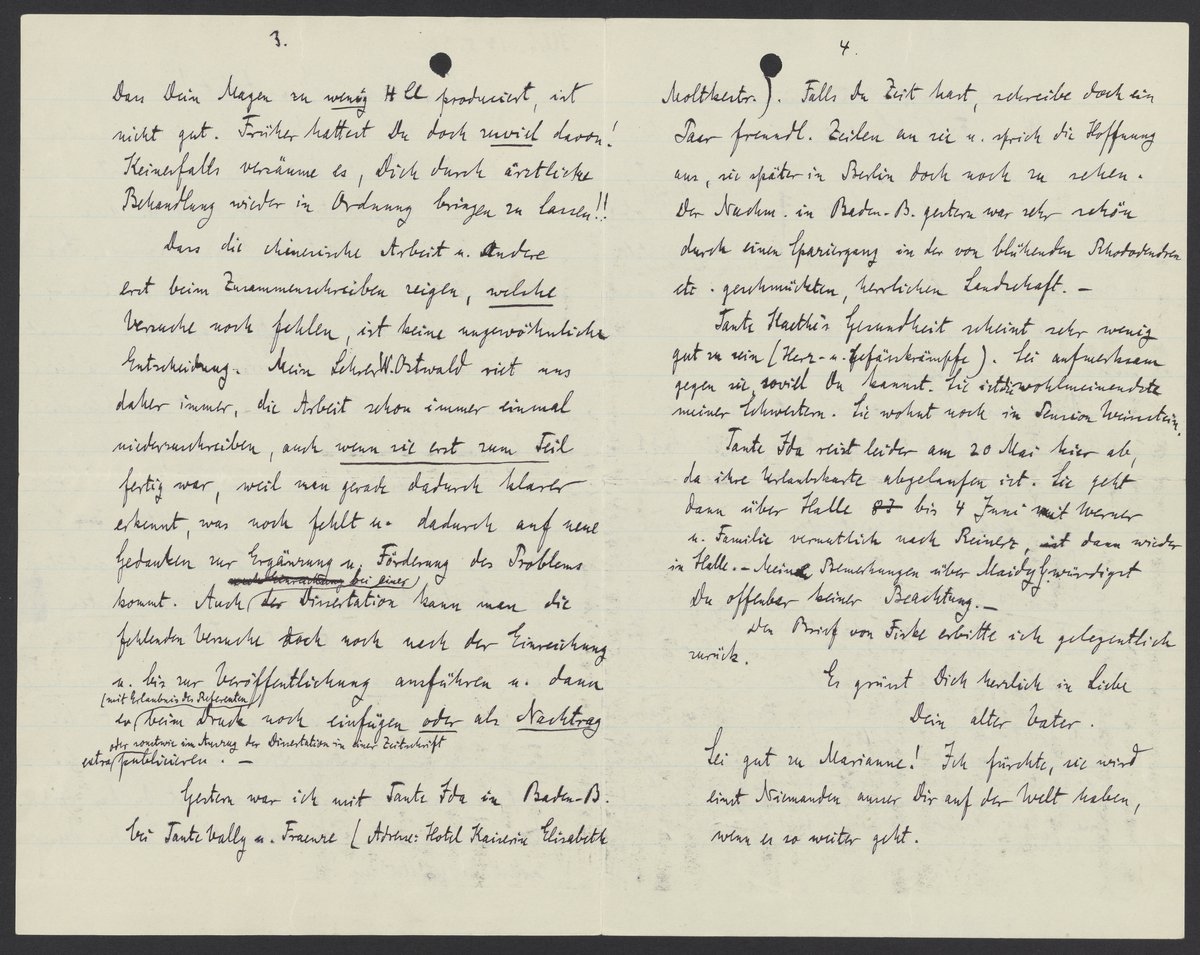 3.
Dass Dein Magen zu wenig HCl produciert, ist
nicht gut. Früher hattest Du doch zuviel davon!
Keinesfalls versäume es, Dich durch ärztliche
Behandlung wieder in Ordnung bringen zu lassen!!
Dass die chinesische Arbeit u. andere
erst beim Zusammenschreiben zeigen, welche
Versuche noch fehlen, ist keine ungewöhnliche
Entscheidung. Mein Lehrer W. Ostwald riet uns
daher immer, die Arbeit schon immer einmal
niederzuschreiben, auch wenn sie erst zum Teil
fertig war, weil man gerade dadurch klarer
erkennt, was noch fehlt u. dadurch auf neue
Gedanken zur Ergänzung u. Förderung des Problems
bei einer
kommt. Auch der Dissertation kann man die
fehlenden Versuche doch noch nach der Einreichung
u. bis zur Veröffentlichung ausführen u. dann
(mit Erlaubnis des Referenten)
beim Druck noch einfügen oder als Nachtrag
oder sonstwie im Auszug der Dissertation in einer Zeitschrift
extra publicieren. —
Gestern war ich mit Tante Ida in Baden-B.
bei Tante Vally u. Fraenze (Adresse: Hotel Kaiserin Elisabeth
4.
Moltkestr.). Falls Du Zeit hast, schreibe doch ein
Paar freundl. Zeilen an sie u. sprich die Hoffnung
aus, sie später in Berlin doch noch zu sehen.
Der Nachm. in Baden-B. gestern war sehr schön
durch einen Spaziergang in der von blühenden Rhododendren
etc. geschmückten, herrlichen Landschaft. —
Tante Kaethe's Gesundheit scheint sehr wenig
gut zu sein (Herz- u. Gefässkrämpfe). Sei aufmerksam
gegen sie, soviel Du kannst. Sie ist die wohlmeinendste
meiner Schwestern. Sie wohnt noch in Pension Weinstein.
Tante Ida reist leider am 20 Mai hier ab,
da ihre Urlaubskarte abgelaufen ist. Sie geht
dann über Halle bis 4 Juni mit Werner
u. Familie vermutlich nach Reinerz, ist dann wieder
in Halle. — Meine Bemerkungen über würdigst
Du offenbar keiner Beachtung. —
Den Brief von Fiske erbitte ich gelegentlich
zurück.
Es grüsst Dich herzlich in Liebe
Dein alter Vater.
Sei gut zu Marianne! Ich fürchte, sie wird
einst Niemanden ausser Dir auf der Welt haben,
wenn es so weiter geht.